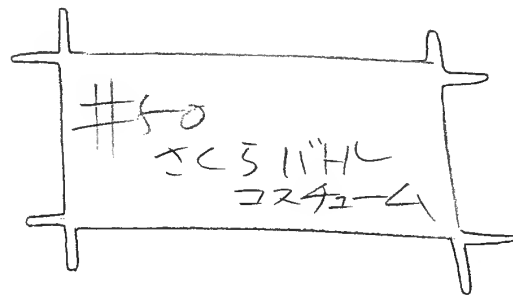 #50
さくらバトル
コスチューム